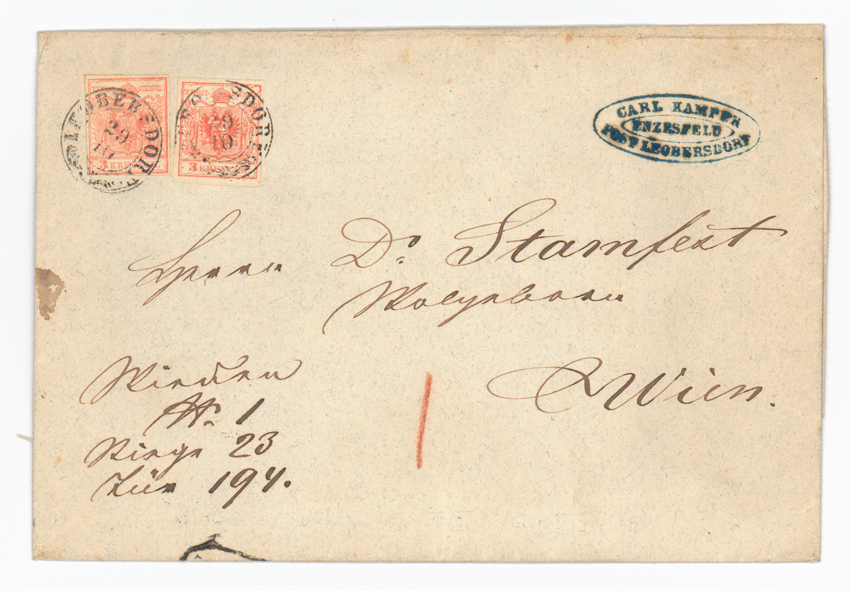 LEOBERSDORF
29
10
3 KREUZER
LEOBERSDORF
29
10
3 KREUZER
CARL KAMPER
ENZESFELD
POST LEOBERSDORF
Herrn Dr. Stamfest
Wolgeboren
Wien.
Wieden
No. 1
Stiege 23
Tür 194.